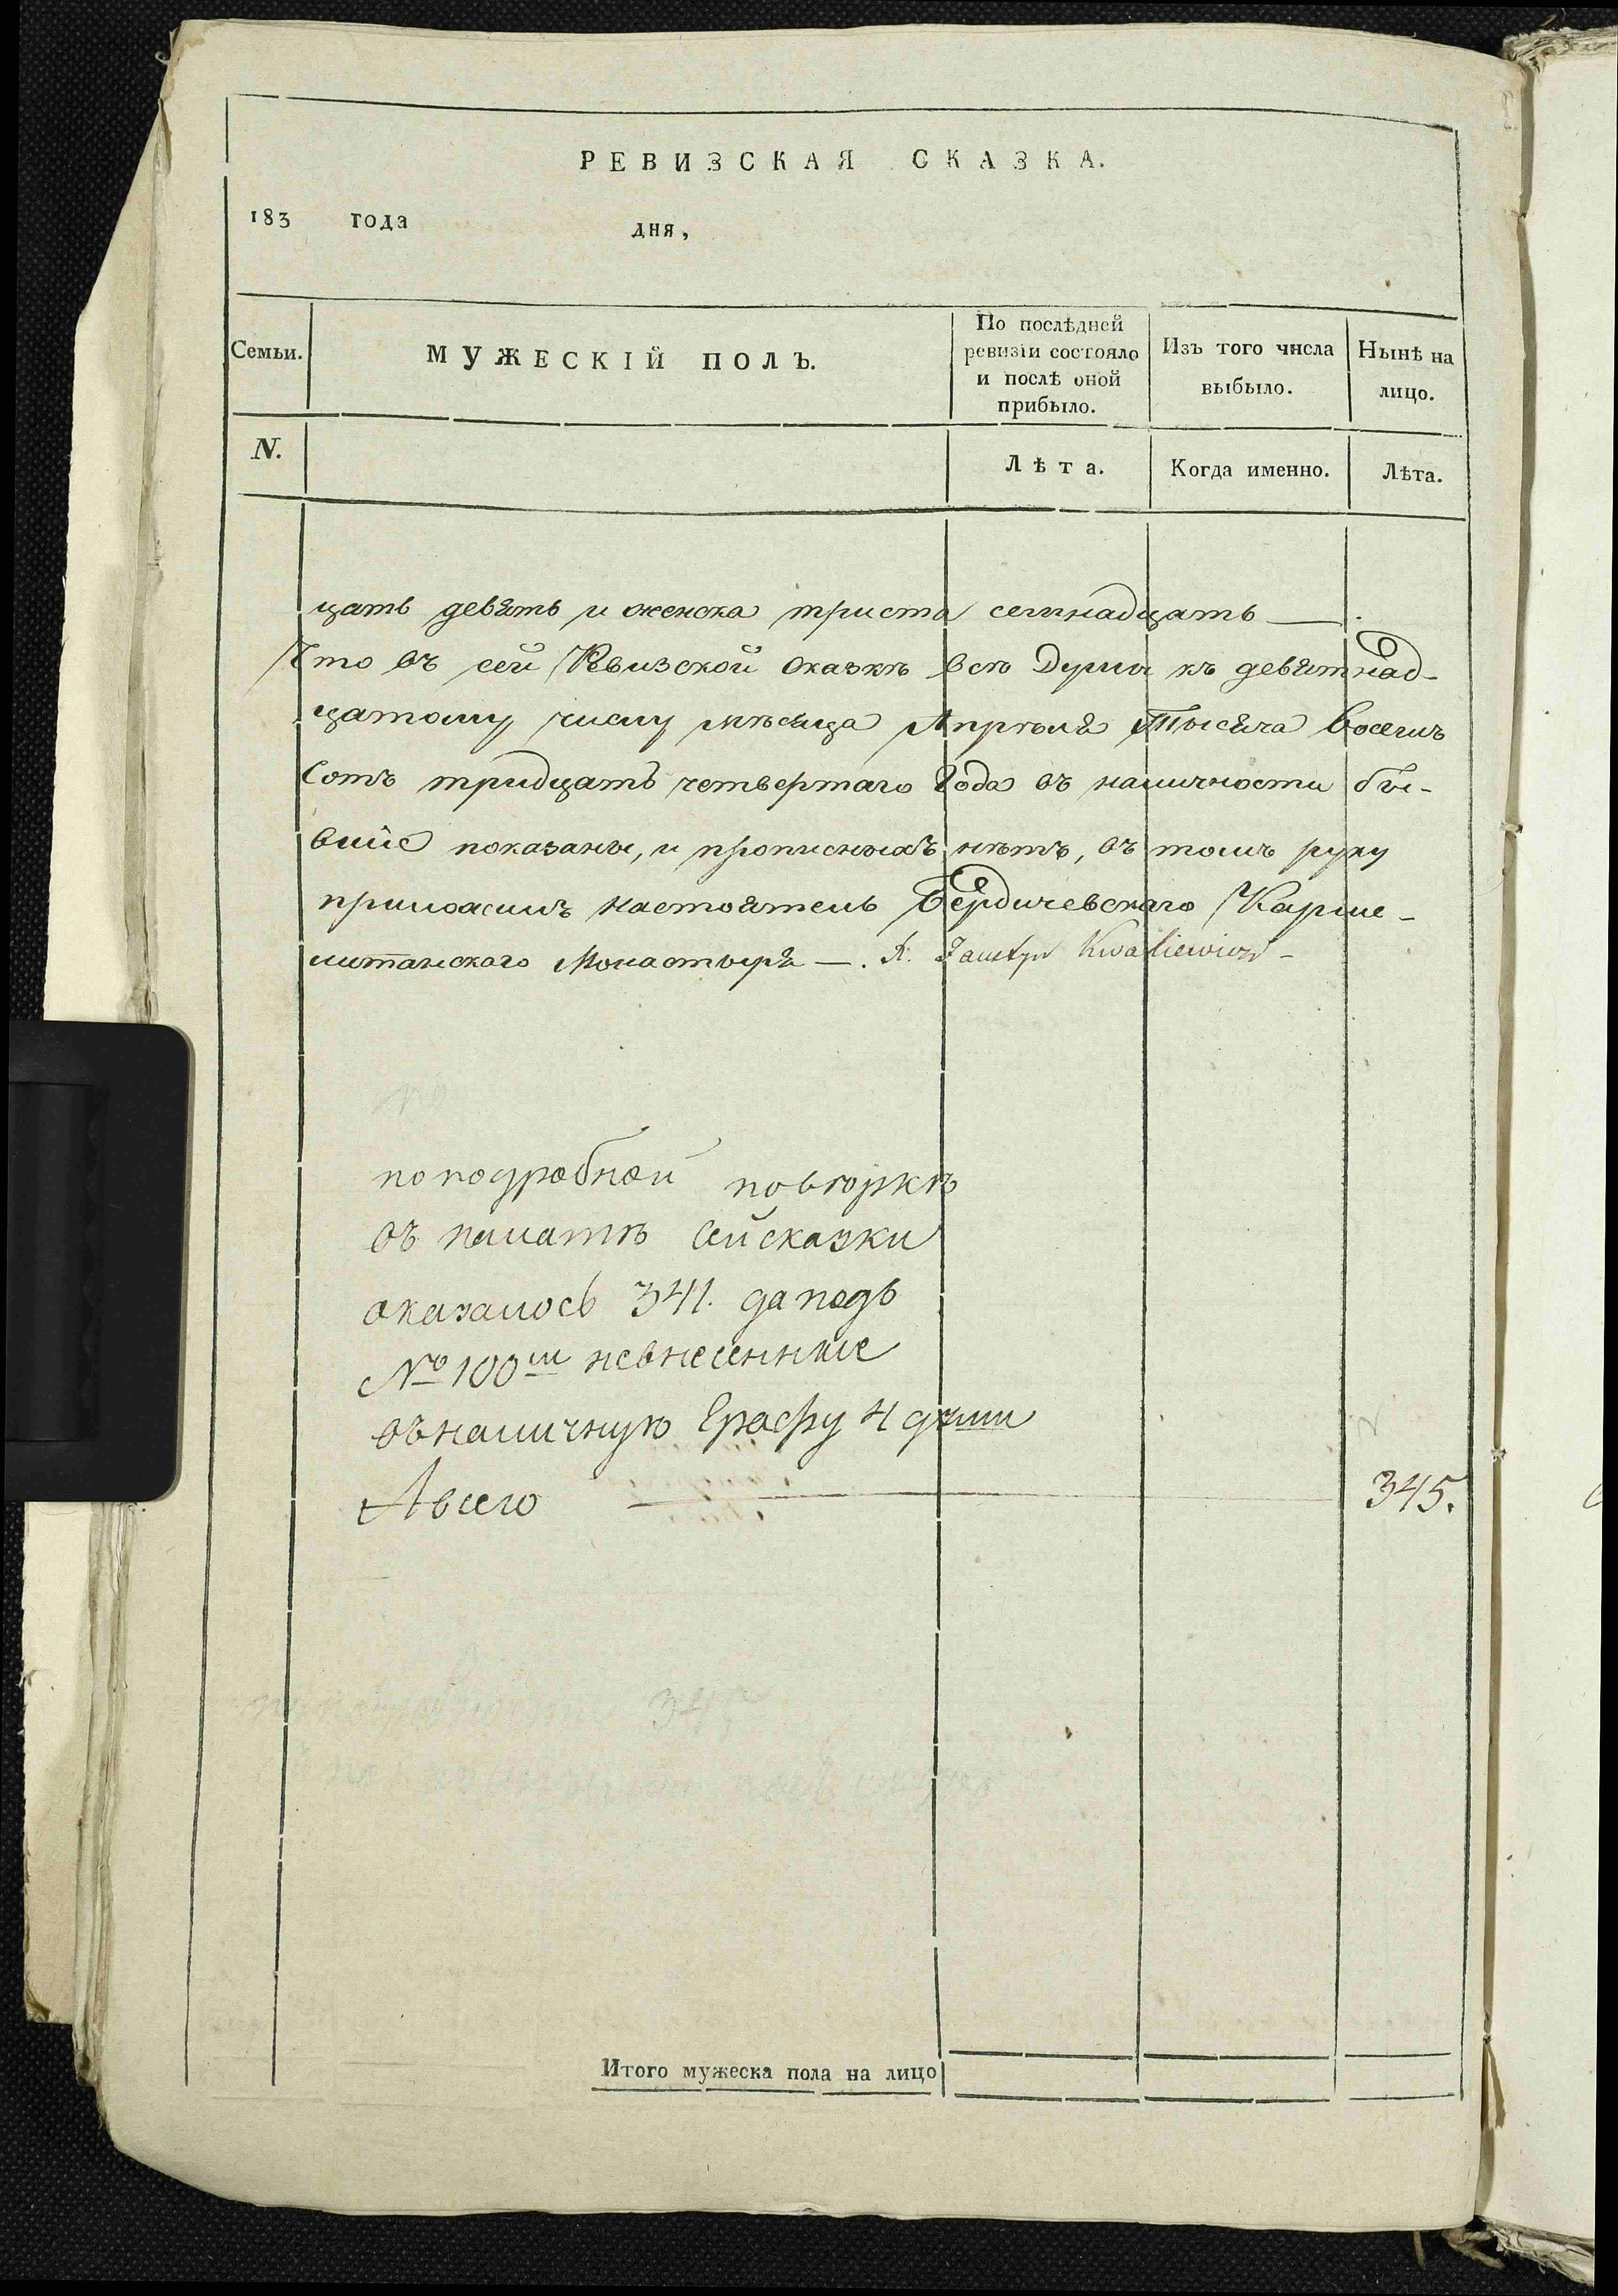 РЕВИЗСКАЯ СКАЗКА.
183 года дня,
Семьи.
МУЖЕСКІЙ ПОЛЪ.
По послѣдней
ревизіи состояло
и послѣ оной
прибыло.
Изъ того числа
выбыло.
Нынѣ на
лицо.
N.
Лѣта.
Когда именно.
Лѣта.
цать девять и женска триста семнадцать —.
Что въ сей Ревизской сказкѣ всѣ Души къ девятнад-
цатому числу мѣсяца Апрѣля Тысяча Восемъ
Сотъ тридцать четвертаго Года въ наличности бы-
вшіе показаны, и прописныхъ нѣтъ, въ томъ руку
приложилъ настоятель Бердичевскаго Карме-
литанскаго Монастыря —. X.
по
по подробной повѣркѣ
въ палатѣ сей сказки
оказалось 341. да подъ
№ 100мъ невнесенные
въ наличную Графу 4 души
А всего — 345.
345
Итого мужеска пола на лицо